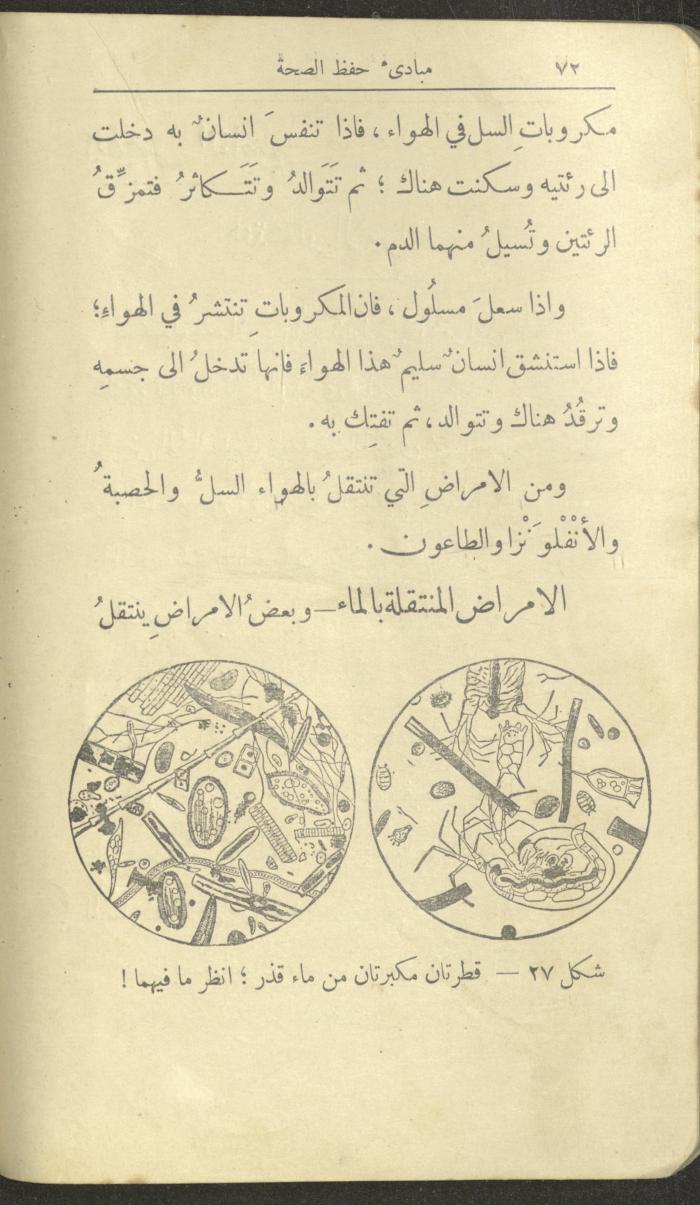 ٧٢ مبادىء حفظ الصحة
مكروباتِ السل في الهواء ، فاذا تنفسَ انسانٌ به دخلت
الى رئتيه وسكنت هناك ؛ ثم تَتَوالدُ وتَتَكاثرُ فتمزِّقُ
الرئتين وتُسيلُ منهما الدم .
واذا سعلَ مسلُول ، فان المكروباتِ تنتشرُ في الهواءِ ؛
فاذا استنشق انسانٌ سليمٌ هذا الهواءَ فانها تدخلُ الى جسمِه
وترقُدُ هناك وتتوالد ، ثم تفتِك به .
ومن الامراضِ التي تنتقلُ بالهواء السلُّ والحصبةُ
والأنْفْلوَنْزا والطاعون .
الامراض المنتقلة بالماء — وبعضُ الامراضِ ينتقلُ
شكل ٢٧ — قطرتان مكبرتان من ماء قذر ؛ انظر ما فيهما !